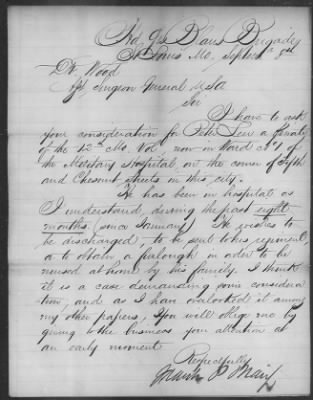 Hd Qrs Blairs Brigade
St Louis Mo, Septembr 8th
Dr. Wood
Surgeon General USA
Sir
I have to ask
your consideration for Peter a private
of the 12th Mo. Vol, now in Ward No 1 of
the Military Hospital, on the corner of Fifth
and Chesnut streets in this city.
He has been in hospital as
I understand, during the past eight
months (since January). He wishes to
be discharged, to be sent to his regiment,
or to obtain a furlough in order to be
nursed at home by his family. I think
it is a case demanding some considera
tion, and as I had overlooked it among
my other papers, You will oblige me by
giving to the business your attention at
an early moment
Respectfully
Frank P Blair